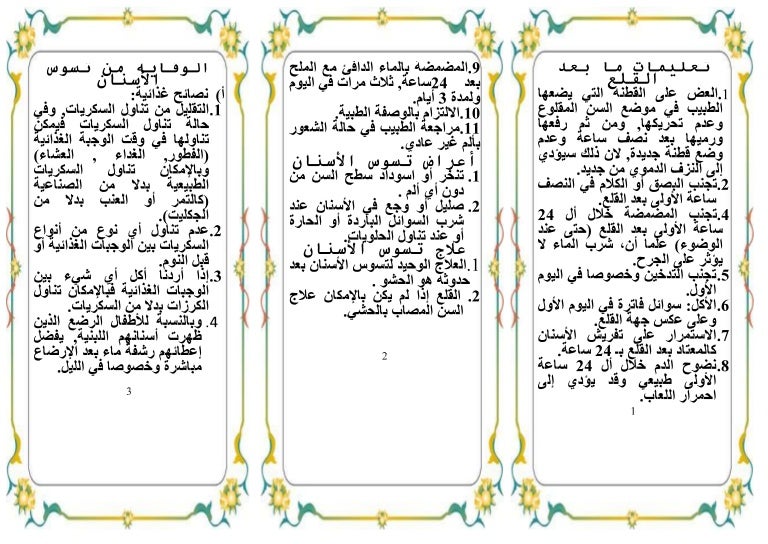 تعليمات ما بعد
القلع
1.العض على القطنة التي يضعها
الطبيب في موضع السن المقلوع
وعدم تحريكها, ومن ثم رفعها
ورميها بعد نصف ساعة وعدم
وضع قطنة جديدة, لان ذلك سيؤدي
إلى النزف الدموي من جديد.
2.تجنب البصق أو الكلام في النصف
ساعة الأولى بعد القلع.
4.تجنب المضمضة خلال أل 24
ساعة الأولى بعد القلع (حتى عند
الوضوء) علما أن، شرب الماء لا
يؤثر على الجرح.
5.تجنب التدخين وخصوصا في اليوم
الأول.
6.الأكل: سوائل فاترة في اليوم الأول
وعلى عكس جهة القلع.
7.الاستمرار على تفريش الأسنان
كالمعتاد بعد القلع بـ 24 ساعة.
8.نضوح الدم خلال أل 24 ساعة
الأولى طبيعي وقد يؤدي إلى
احمرار اللعاب.
1
9.المضمضه بالماء الدافئ مع الملح
بعد 24ساعة, ثلاث مرات في اليوم
ولمدة 3 أيام.
10.الالتزام بالوصفة الطبية.
11.مراجعة الطبيب في حالة الشعور
بألم غير عادي.
أعراض تسوس الأسنان
1. تنخر أو اسوداد سطح السن من
دون أي ألم .
2. صليل أو وجع في الأسنان عند
شرب السوائل الباردة أو الحارة
أو عند تناول الحلويات.
علاج تسوس الأسنان
1.العلاج الوحيد لتسوس الأسنان بعد
حدوثه هو الحشو .
2. القلع إذا لم يكن بالإمكان علاج
السن المصاب بالحشي.
2
الوقايه من تسوس
الأسنان
أ) نصائح غذائية:
1.التقليل من تناول السكريات, وفي
حالة تناول السكريات فيمكن
تناولها في وقت الوجبة الغذائية
(الفطور, الغداء , العشاء)
وبالإمكان تناول السكريات
الطبيعية بدلا من الصناعية
(كالتمر أو العنب بدلا من
الجكليت).
2.عدم تناول أي نوع من أنواع
السكريات بين الوجبات الغذائية أو
قبل النوم.
3.إذا أردنا أكل أي شيء بين
الوجبات الغذائية فبالإمكان تناول
الكرزات بدلا من السكريات.
4. وبالنسبة للأطفال الرضع الذين
ظهرت أسنانهم اللبنية, يفضل
إعطائهم رشفة ماء بعد الإرضاع
مباشرة وخصوصا في الليل.
3